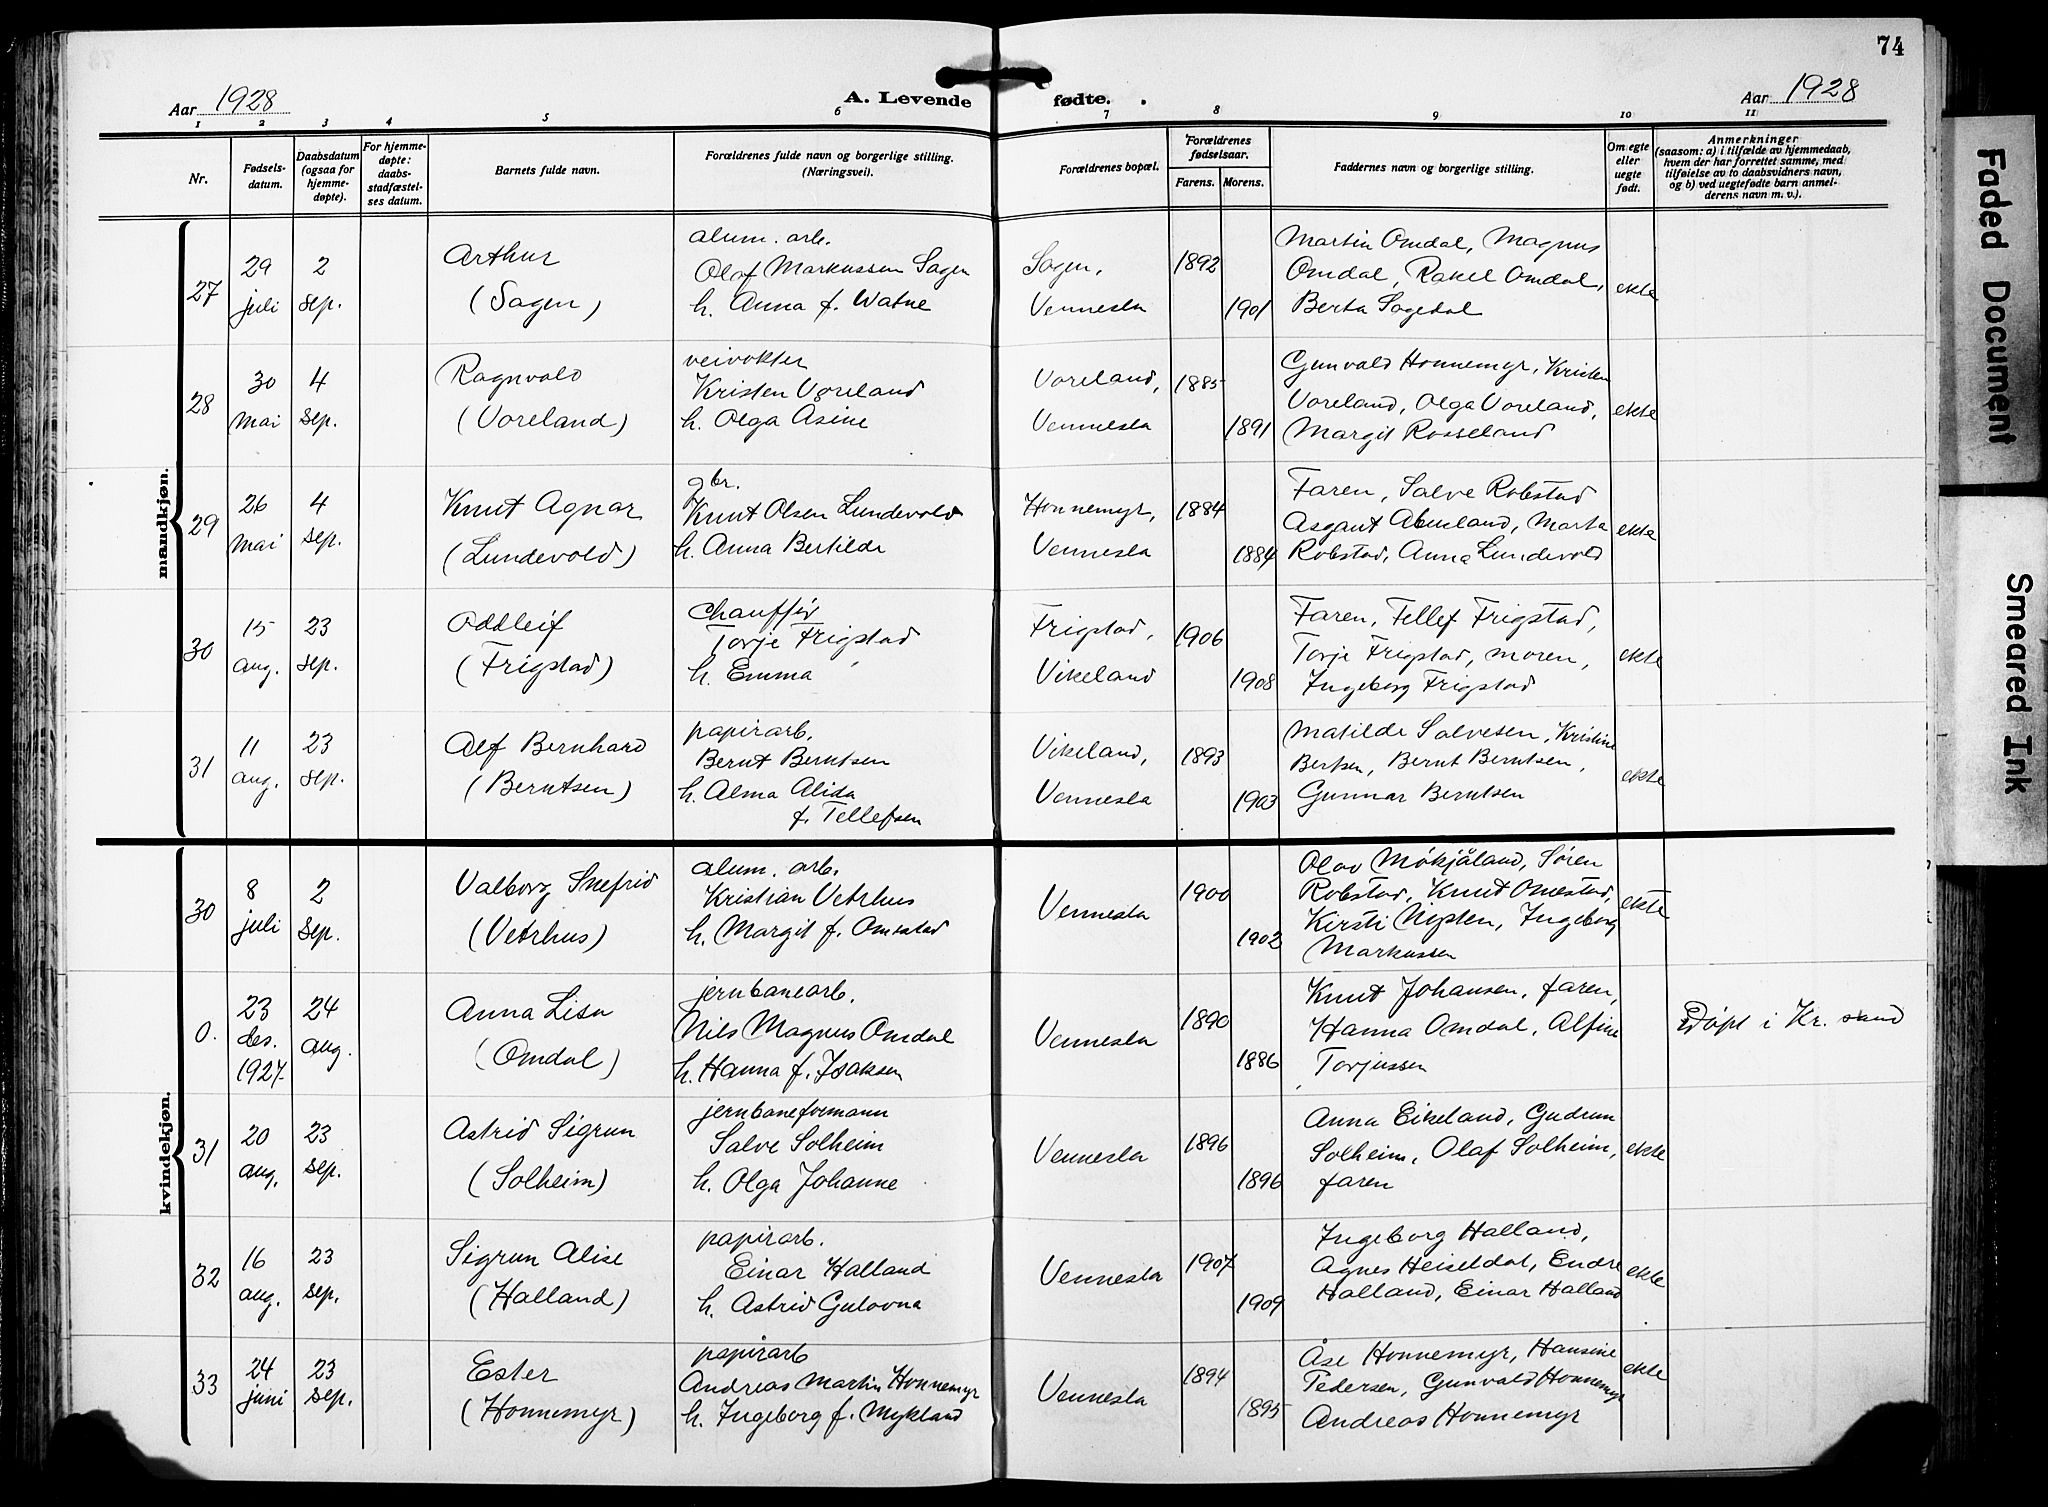 74
Aar 1928
A. Levende fødte.
Aar 1928
1 2 3 4 5 6 7 8 9 10 11
Nr.
Fødsels-
datum.
Daabsdatum
(ogsaa for
hjemme-
døpte).
For hjemme-
døpte:
daabs-
stadfæstel-
ses datum.
Barnets fulde navn.
Forældrenes fulde navn og borgerlige stilling.
(Næringsvei).
Forældrenes bopæl.
Forældrenes
fødselsaar.
Farens. Morens.
Faddernes navn og borgerlige stilling.
Om egte
eller
uegte
født.
Anmerkninger
(saasom: a) i tilfælde av hjemmedaab,
hvem der har forrettet samme, med
tilføielse av to daabsvidners navn,
og b) ved uegtefødte barn anmel-
derens navn m. v.).
mandkjøn.
27
29
juli
2
sep.
Arthur
(Sagen)
alum. arb.
Olaf Markussen Sagen
h. Anna f. Watne
Sagen,
Vennesla
1892
1901
Martin Omdal, Magnus
Omdal, Rakel Omdal,
Berta Sagedal
ekte
28
30
Mai
4
sep.
Ragnvald
(Voreland)
veivokter
Kristen Voreland
h. Olga Asine
Voreland,
Vennesla
1885
1891
Gunvald Honnemyr, Kristen
Voreland, Olga Voreland,
Margit Rosseland
ekte
29
26
Mai
4
sep.
Knut Agnar
(Lundevold)
gbr.
Knut Olsen Lundevold
h. Anna Bertilde
Honnemyr,
Vennesla
1884
1884
Faren, Salve Robstad
Asgaut Abusland, Marta
Robstad, Anna Lundevold
ekte
30
15
aug.
23
sep.
Oddleif
(Frigstad)
Chauffør
Torje Frigstad
h. Emma
Frigstad,
Vikeland
1906
1908
Faren, Tellef Frigstad,
Torje Frigstad, moren,
Ingeborg Frigstad
ekte
31
11
aug.
23
sep.
Alf Bernhard
(Berntsen)
papirarb.
Bernt Berntsen
h. Alma Alida
f. Tellefsen
Vikeland,
Vennesla
1893
1903
Matilde Salvesen, Kristine
Bertsen, Bernt Berntsen,
Gunnar Berntsen
ekte
kvindekjøn.
30
8
juli
2
sep.
Valborg Snefrid
(Vetrhus)
alum. arb.
Kristian Vetrhus
h. Margit f. Omestad
Vennesla
1900
1902
Olav Mökjåland, Søren
Robstad, Knut Omestad,
Kirsti Nipsten, Ingeborg
Markussen
ekte
0.
23
des.
1927
24
aug.
Anna Lisa
(Omdal)
jernbanearb.
Nils Magnus Omdal
h. Hanna f. Isaksen
Vennesla
1890
1886
Knut Johansen, faren,
Hanna Omdal, Alfine
Torjussen
Døpt i Kr. sand
31
20
aug.
23
sep.
Astrid Sigrun
(Solheim)
jernbaneformann
Salve Solheim
h. Olga Johanne
Vennesla
1896
1896
Anna Eikeland, Gudrun
Solheim, Olaf Solheim,
faren
ekte
32
16
aug.
23
sep.
Sigrun Alise
(Halland)
papirarb.
Einar Halland
h. Astrid Gulovna
Vennesla
1907
1909
Ingeborg Halland,
Agnes Heiseldal, Endre
Halland, Einar Halland
ekte
33
24
juni
23
sep.
Ester
(Honnemyr)
papirarb
Andreas Martin Honnemyr
h. Ingeborg f. Mykland
Vennesla
1894
1895
Åse Honnemyr, Hansine
Pedersen, Gunvald Honnemyr
Andreas Honnemyr
ekte
Faded Document
Smeared Ink